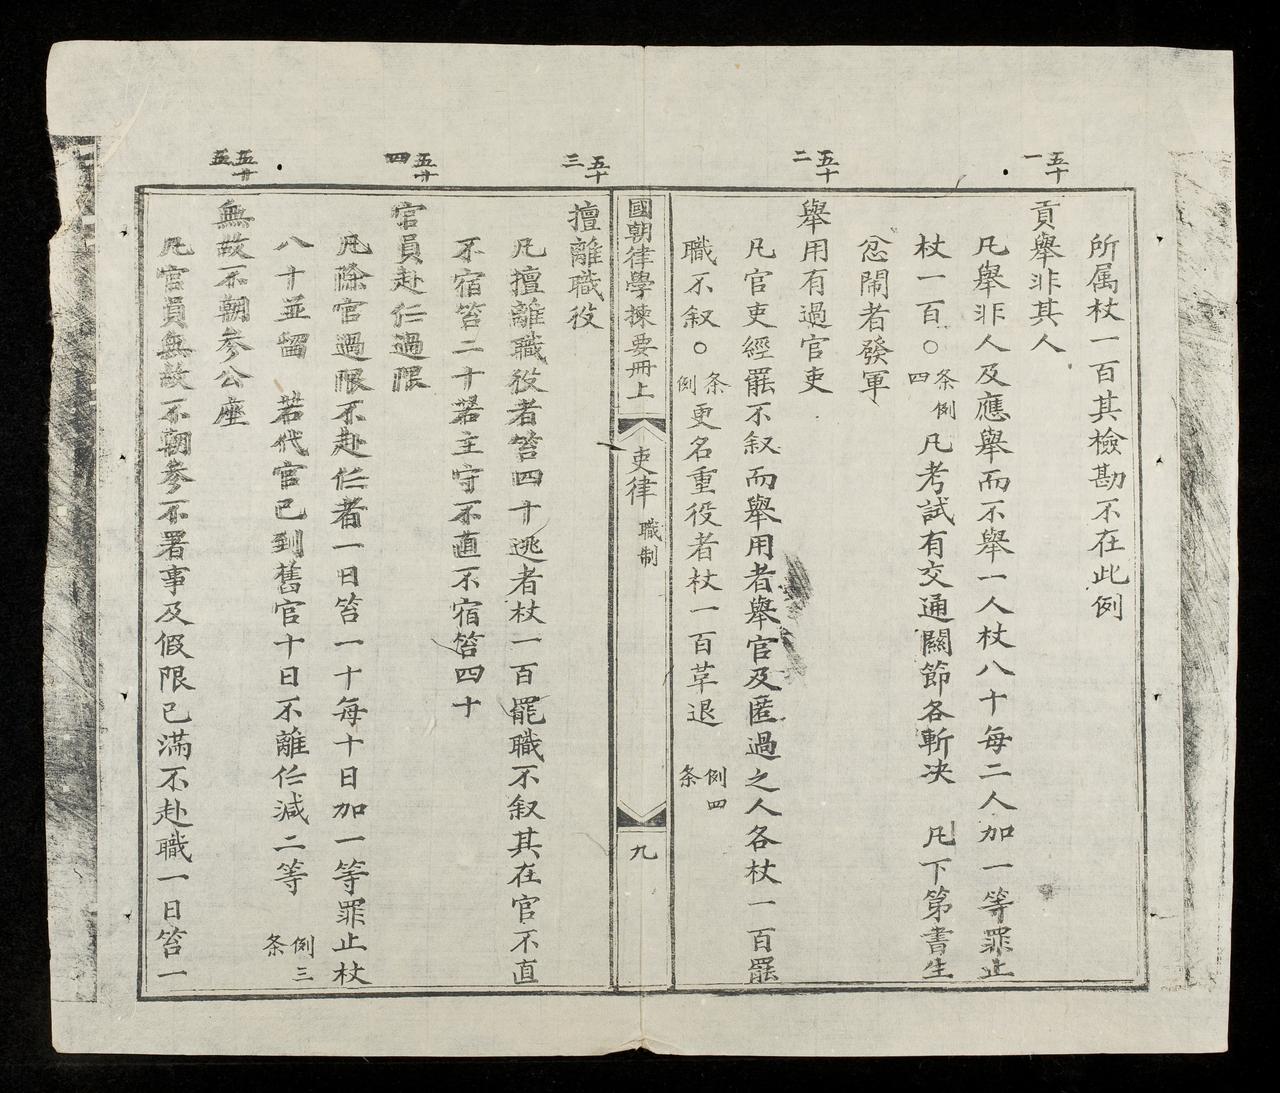 所属杖一百其檢勘不在此例
五十一
貢舉非其人
凡舉非人及應舉而不舉一人杖八十每二人加一等罪止
杖一百○条例四凡考試有交通關節各斬决　凡下第書生
忿鬧者發軍
五十二
舉用有過官吏
凡官吏經罷不叙而舉用者舉官及匿過之人各杖一百罷
職不叙○条例更名重役者杖一百革退　例四条
國朝律學揀要冊上　吏律　職制　九
五十三
擅離職役
凡擅離職役者笞四十逃者杖一百罷職不叙其在官不直
不宿笞二十若主守不直不宿笞四十
五十四
官員赴任過限
凡除官過限不赴任者一日笞一十每十日加一等罪止杖
八十並留　若代官已到舊官十日不離任減二等　例三条
五十五
無故不朝參公座
凡官員無故不朝參不署事及假限已滿不赴職一日笞一